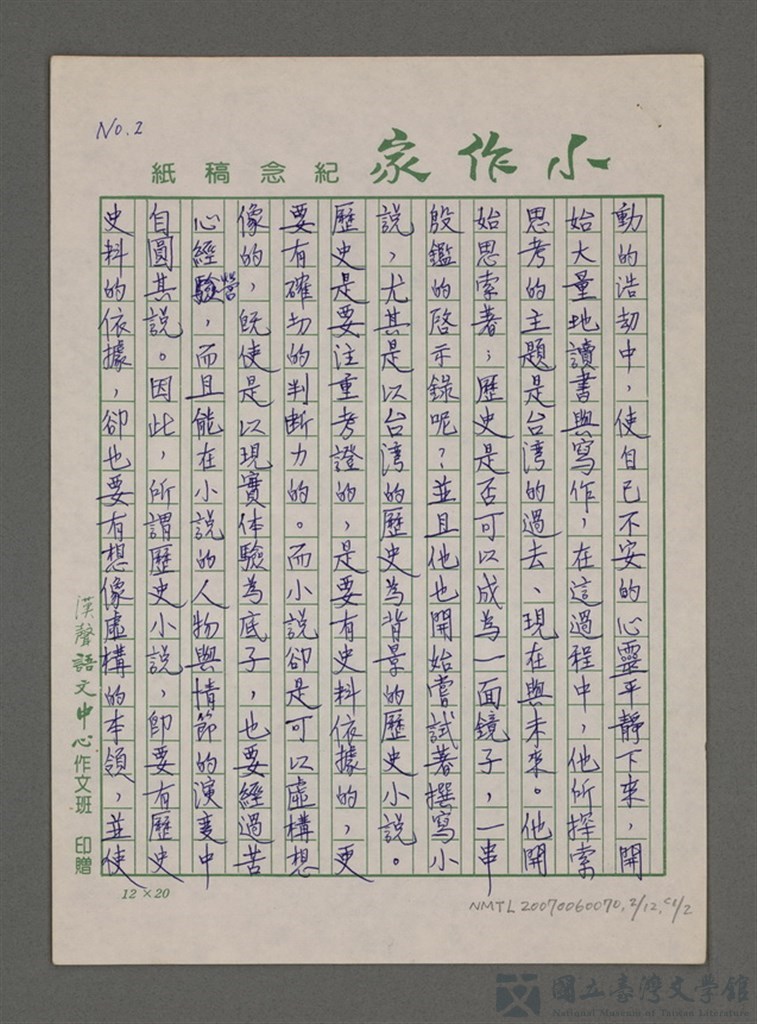 No. 2
小作家 紀念稿紙
動的浩劫中，使自己不安的心靈平靜下來，開
始大量地讀書與寫作，在這過程中，他所探索
思考的主題是台湾的過去、現在與未來。他開
始思索著；歷史是否可以成為一面鏡子，一串
殷鑑的啓示錄呢？並且他也開始嘗試著撰寫小
說，尤其是以台湾的歷史為背景的歷史小說。
歷史是要注重考證的，是要有史料依據的，更
要有確切的判斷力的。而小說卻是可以虛構想
像的，既使是以現實体驗為底子，也要經過苦
心經營，而且能在小說的人物與情節的演變中
自圓其說。因此，所謂歷史小說，即要有歷史
史料的依據，卻也要有想像虛構的本領，並使
漢聲語文中心作文班 印贈
12×20
NMTL20070060070, 2/12, c1/2
國立臺灣文學館
National Museum of Taiwan Literature